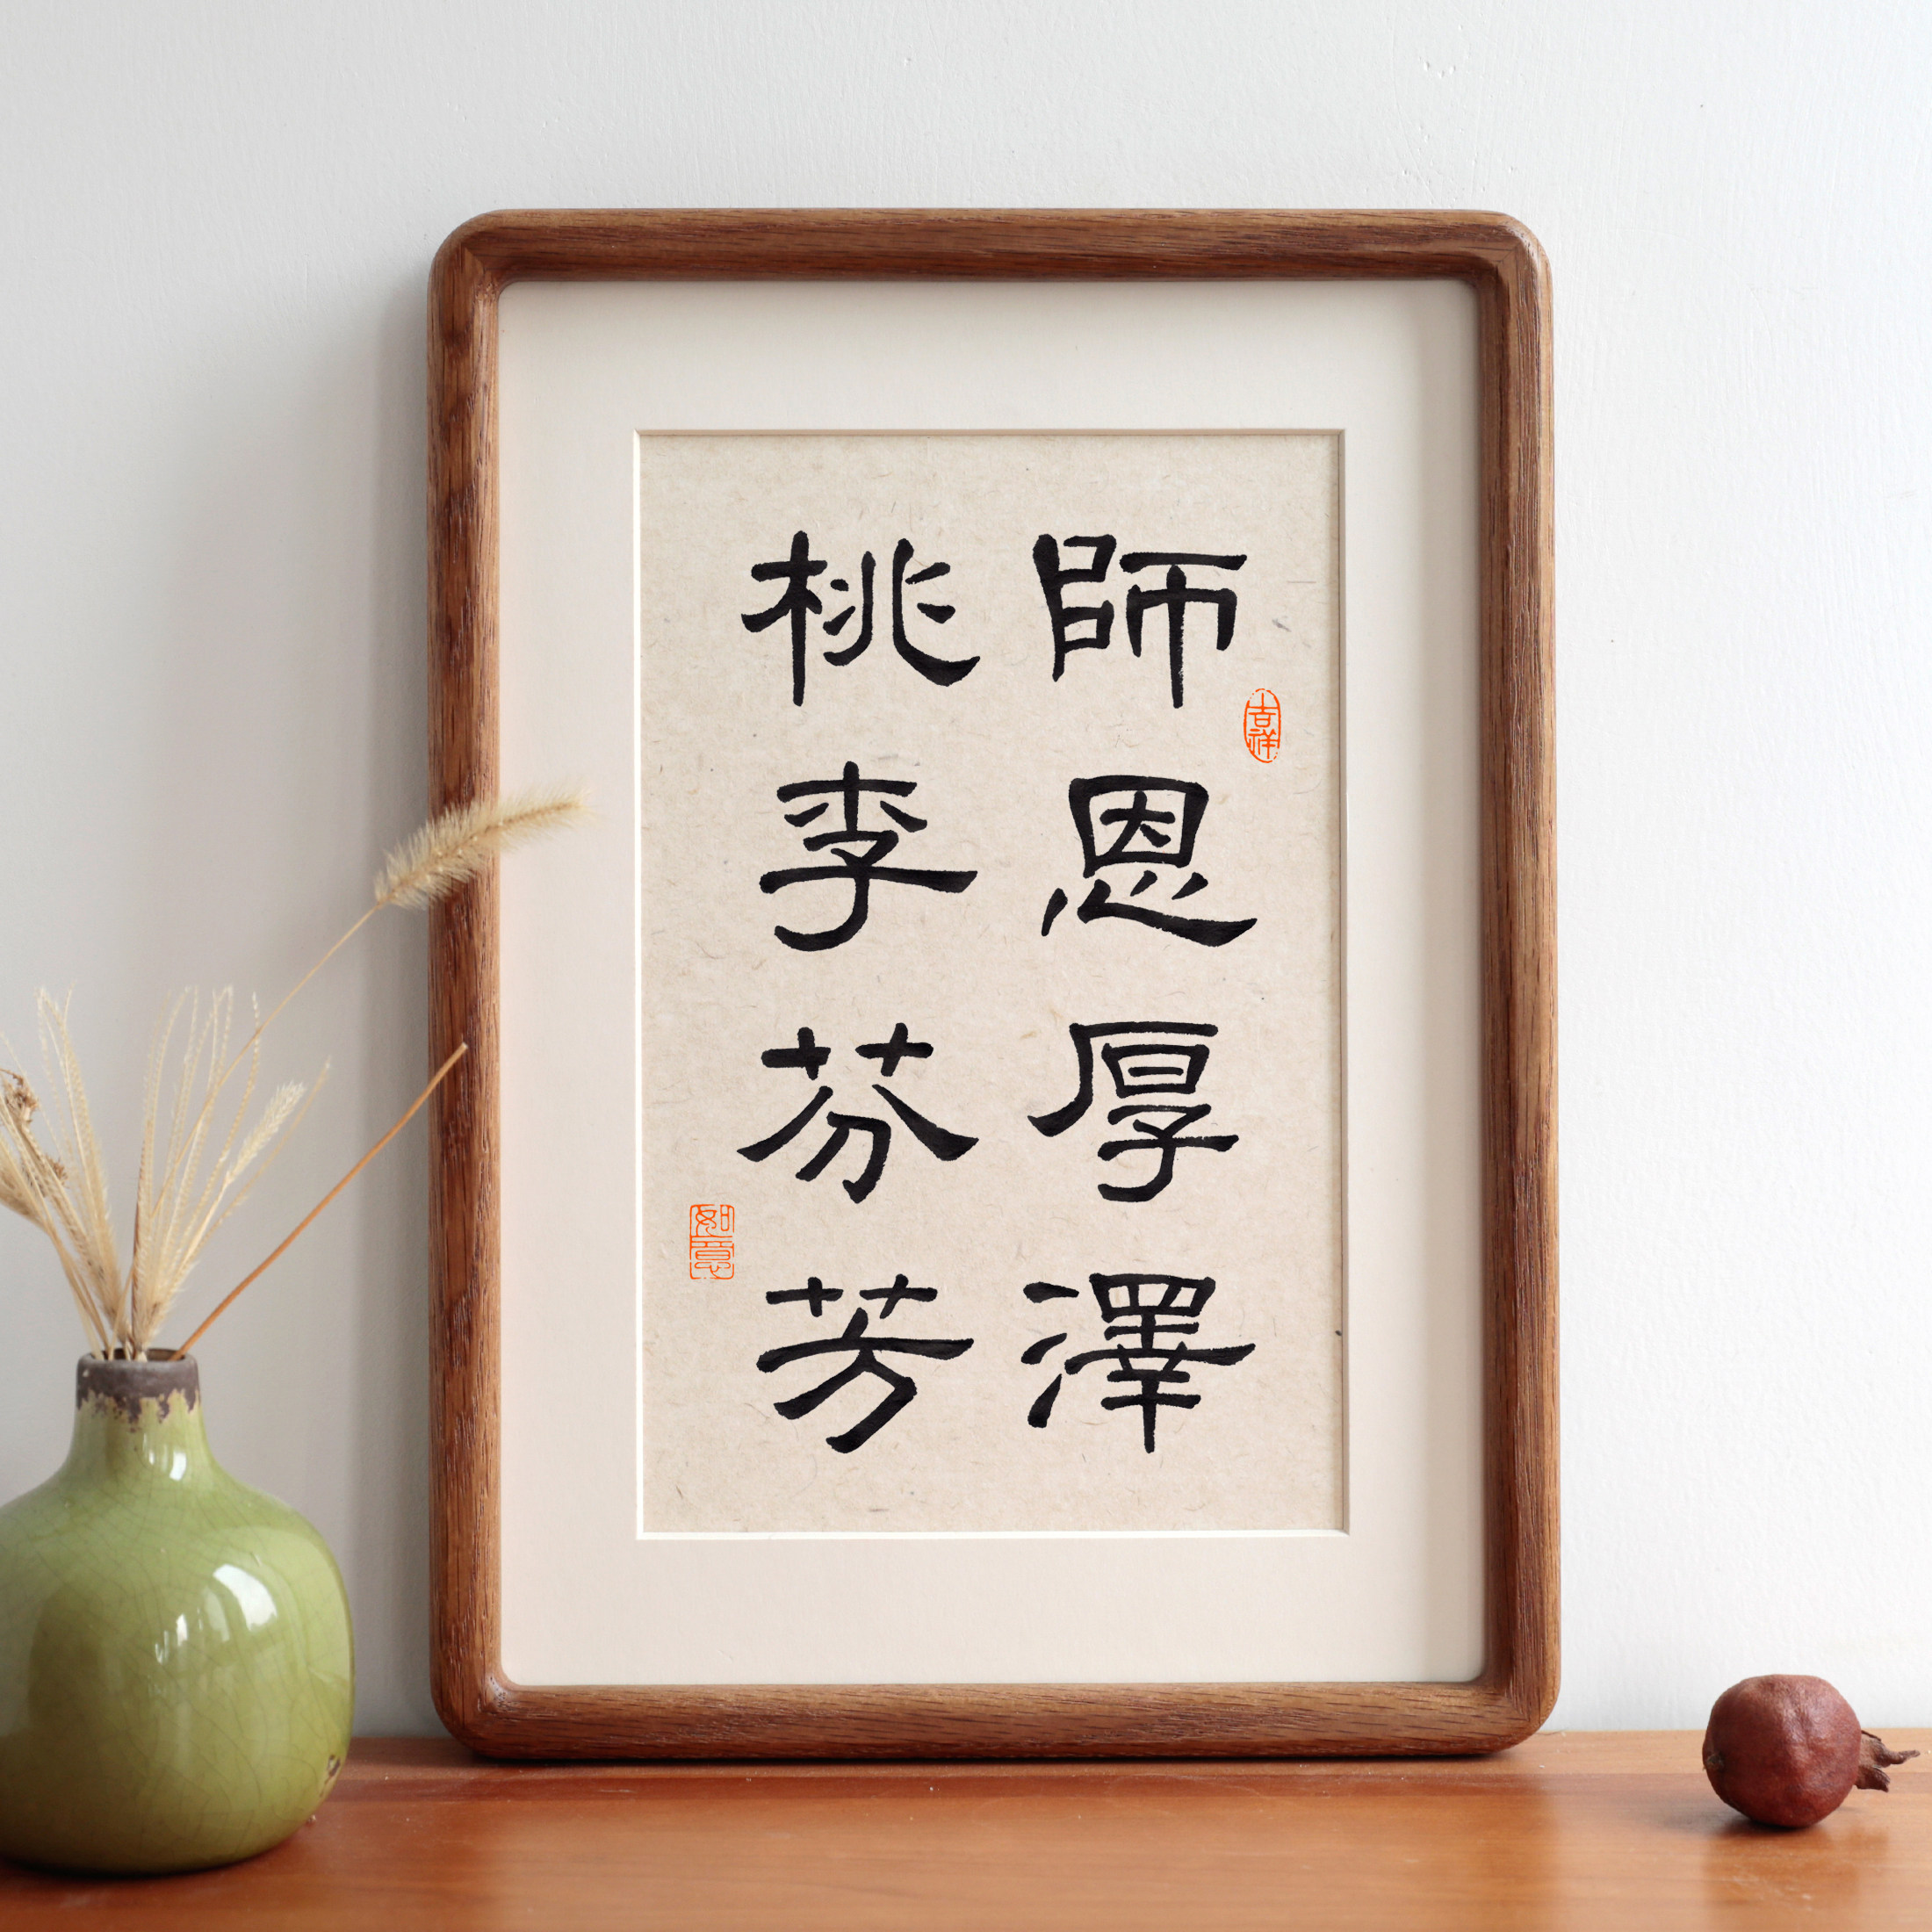 師恩厚澤
桃李芬芳
吉祥
如意